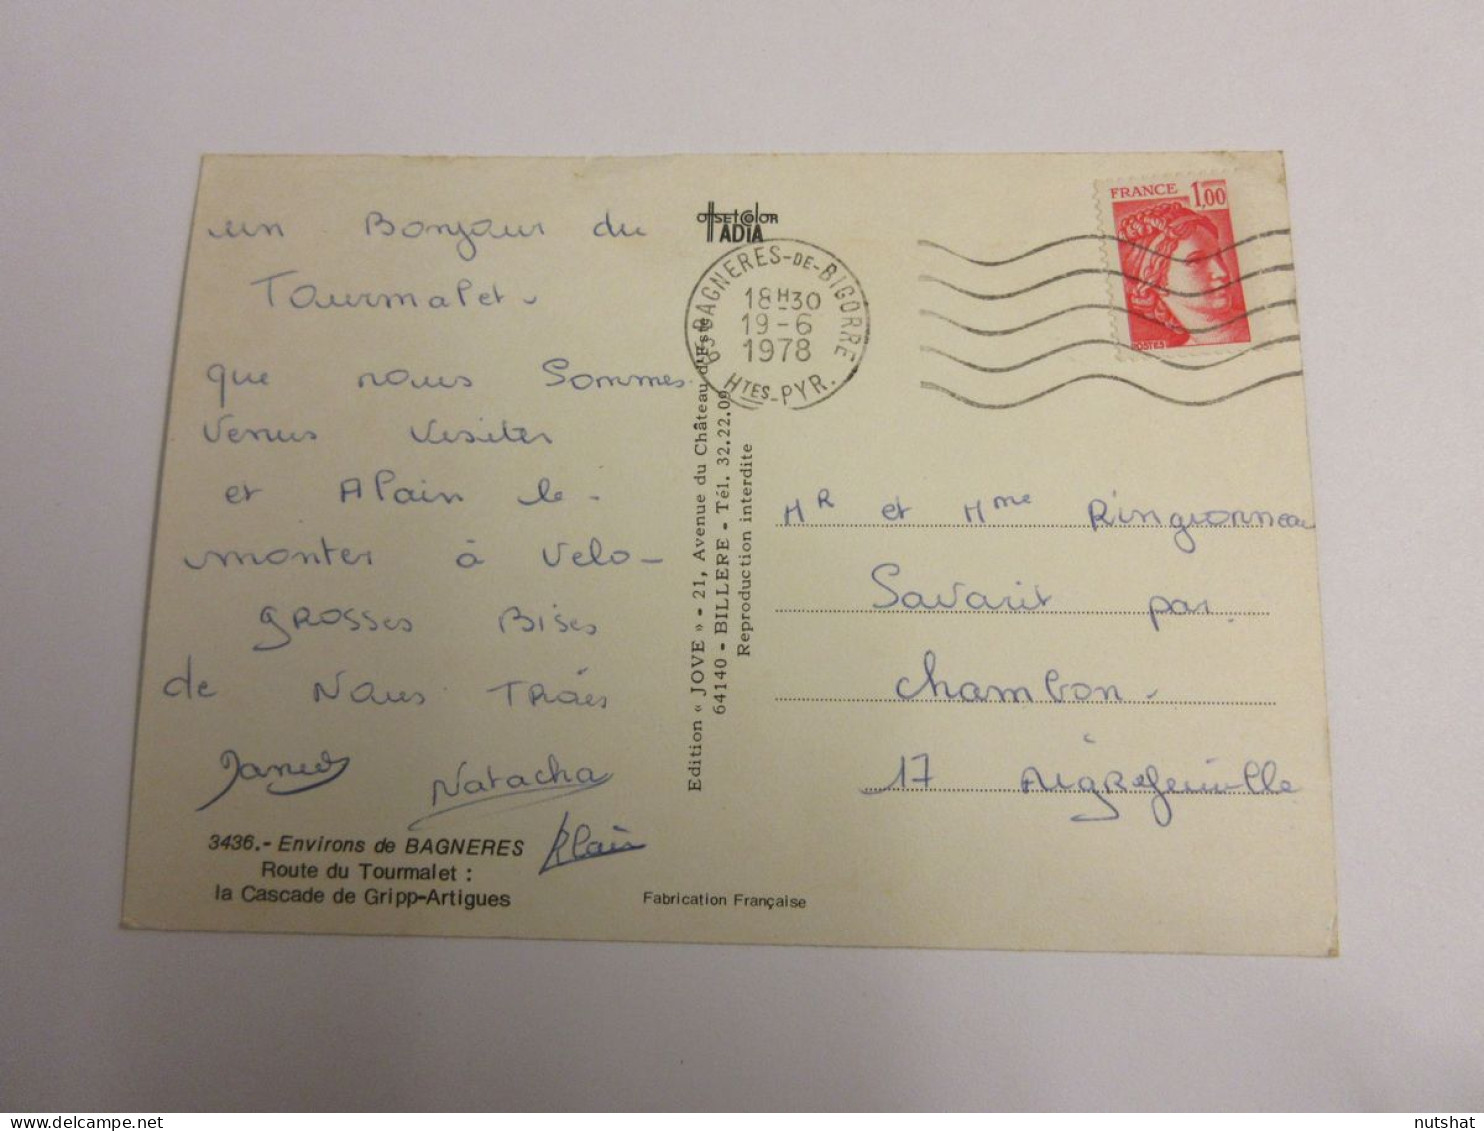 un Bonjour du
Tourmalet -
que nous Sommes
Venus Visiter
et Alain le -
monter à Velo -
grosses Bises
de Nous Trois
Natacha
Alain
3436.- Environs de BAGNERES
Route du Tourmalet :
la Cascade de Gripp-Artigues
OffSET COlOR
ADiA
Edition « JOVE » - 21, Avenue du Château d'Este
64140 - BILLERE - Tél. 32.22.09
Reproduction interdite
Fabrication Française
65 BAGNERES-DE-BIGORRE
18H30
19-6
1978
HTES-PYR.
FRANCE 1,00
POSTES
MR et Mme Ringeonneau
Savarit par
Chambon -
17 Aigrefeuille
nutshat